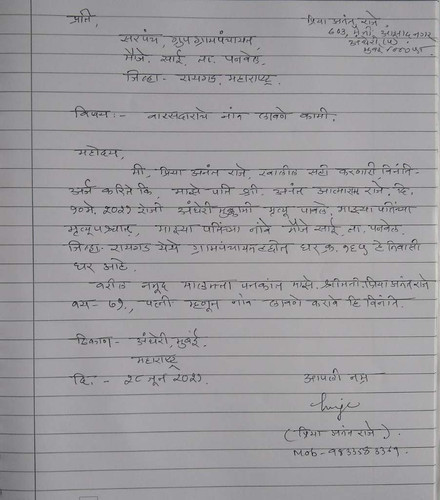 प्रति,
प्रिया अनंत राजे
सरपंच, ग्रुप ग्रामपंचायत
६०३, आझाद नगर
मौजे. साई, ता. पनवेल,
अंधेरी (प)
जिल्हा- रायगड, महाराष्ट्र.
विषय :- वारसदाराचे नांव लावणे कामी.
महोदय,
मी, प्रिया अनंत राजे, खालील सही करणारी, विनंति-
अर्ज करिते कि, माझे पति श्री. अनंत आत्माराम राजे, दि.
१० मे, २०२१ रोजी अंधेरी मुक्कामी मृत्यू पावले. माझ्या पतिंच्या
मृत्यूपश्चात्, माझ्या पतिंच्या नांवे मौजे साई, ता. पनवेल,
जिल्हा- रायगड येथे ग्रामपंचायत हद्दीत घर क्र. १६५ हे निवासी
घर आहे.
वरील नमूद मालमत्ता पत्रकांत माझे श्रीमती. प्रिया अनंत राजे
वय- ७१, पत्नी म्हणून नांव लावणे करावे हि विनंति.
ठिकाण- अंधेरी, मुंबई.
महाराष्ट्र
दि. - २८ जून २०२१.
आपली नम्र
(प्रिया अनंत राजे).